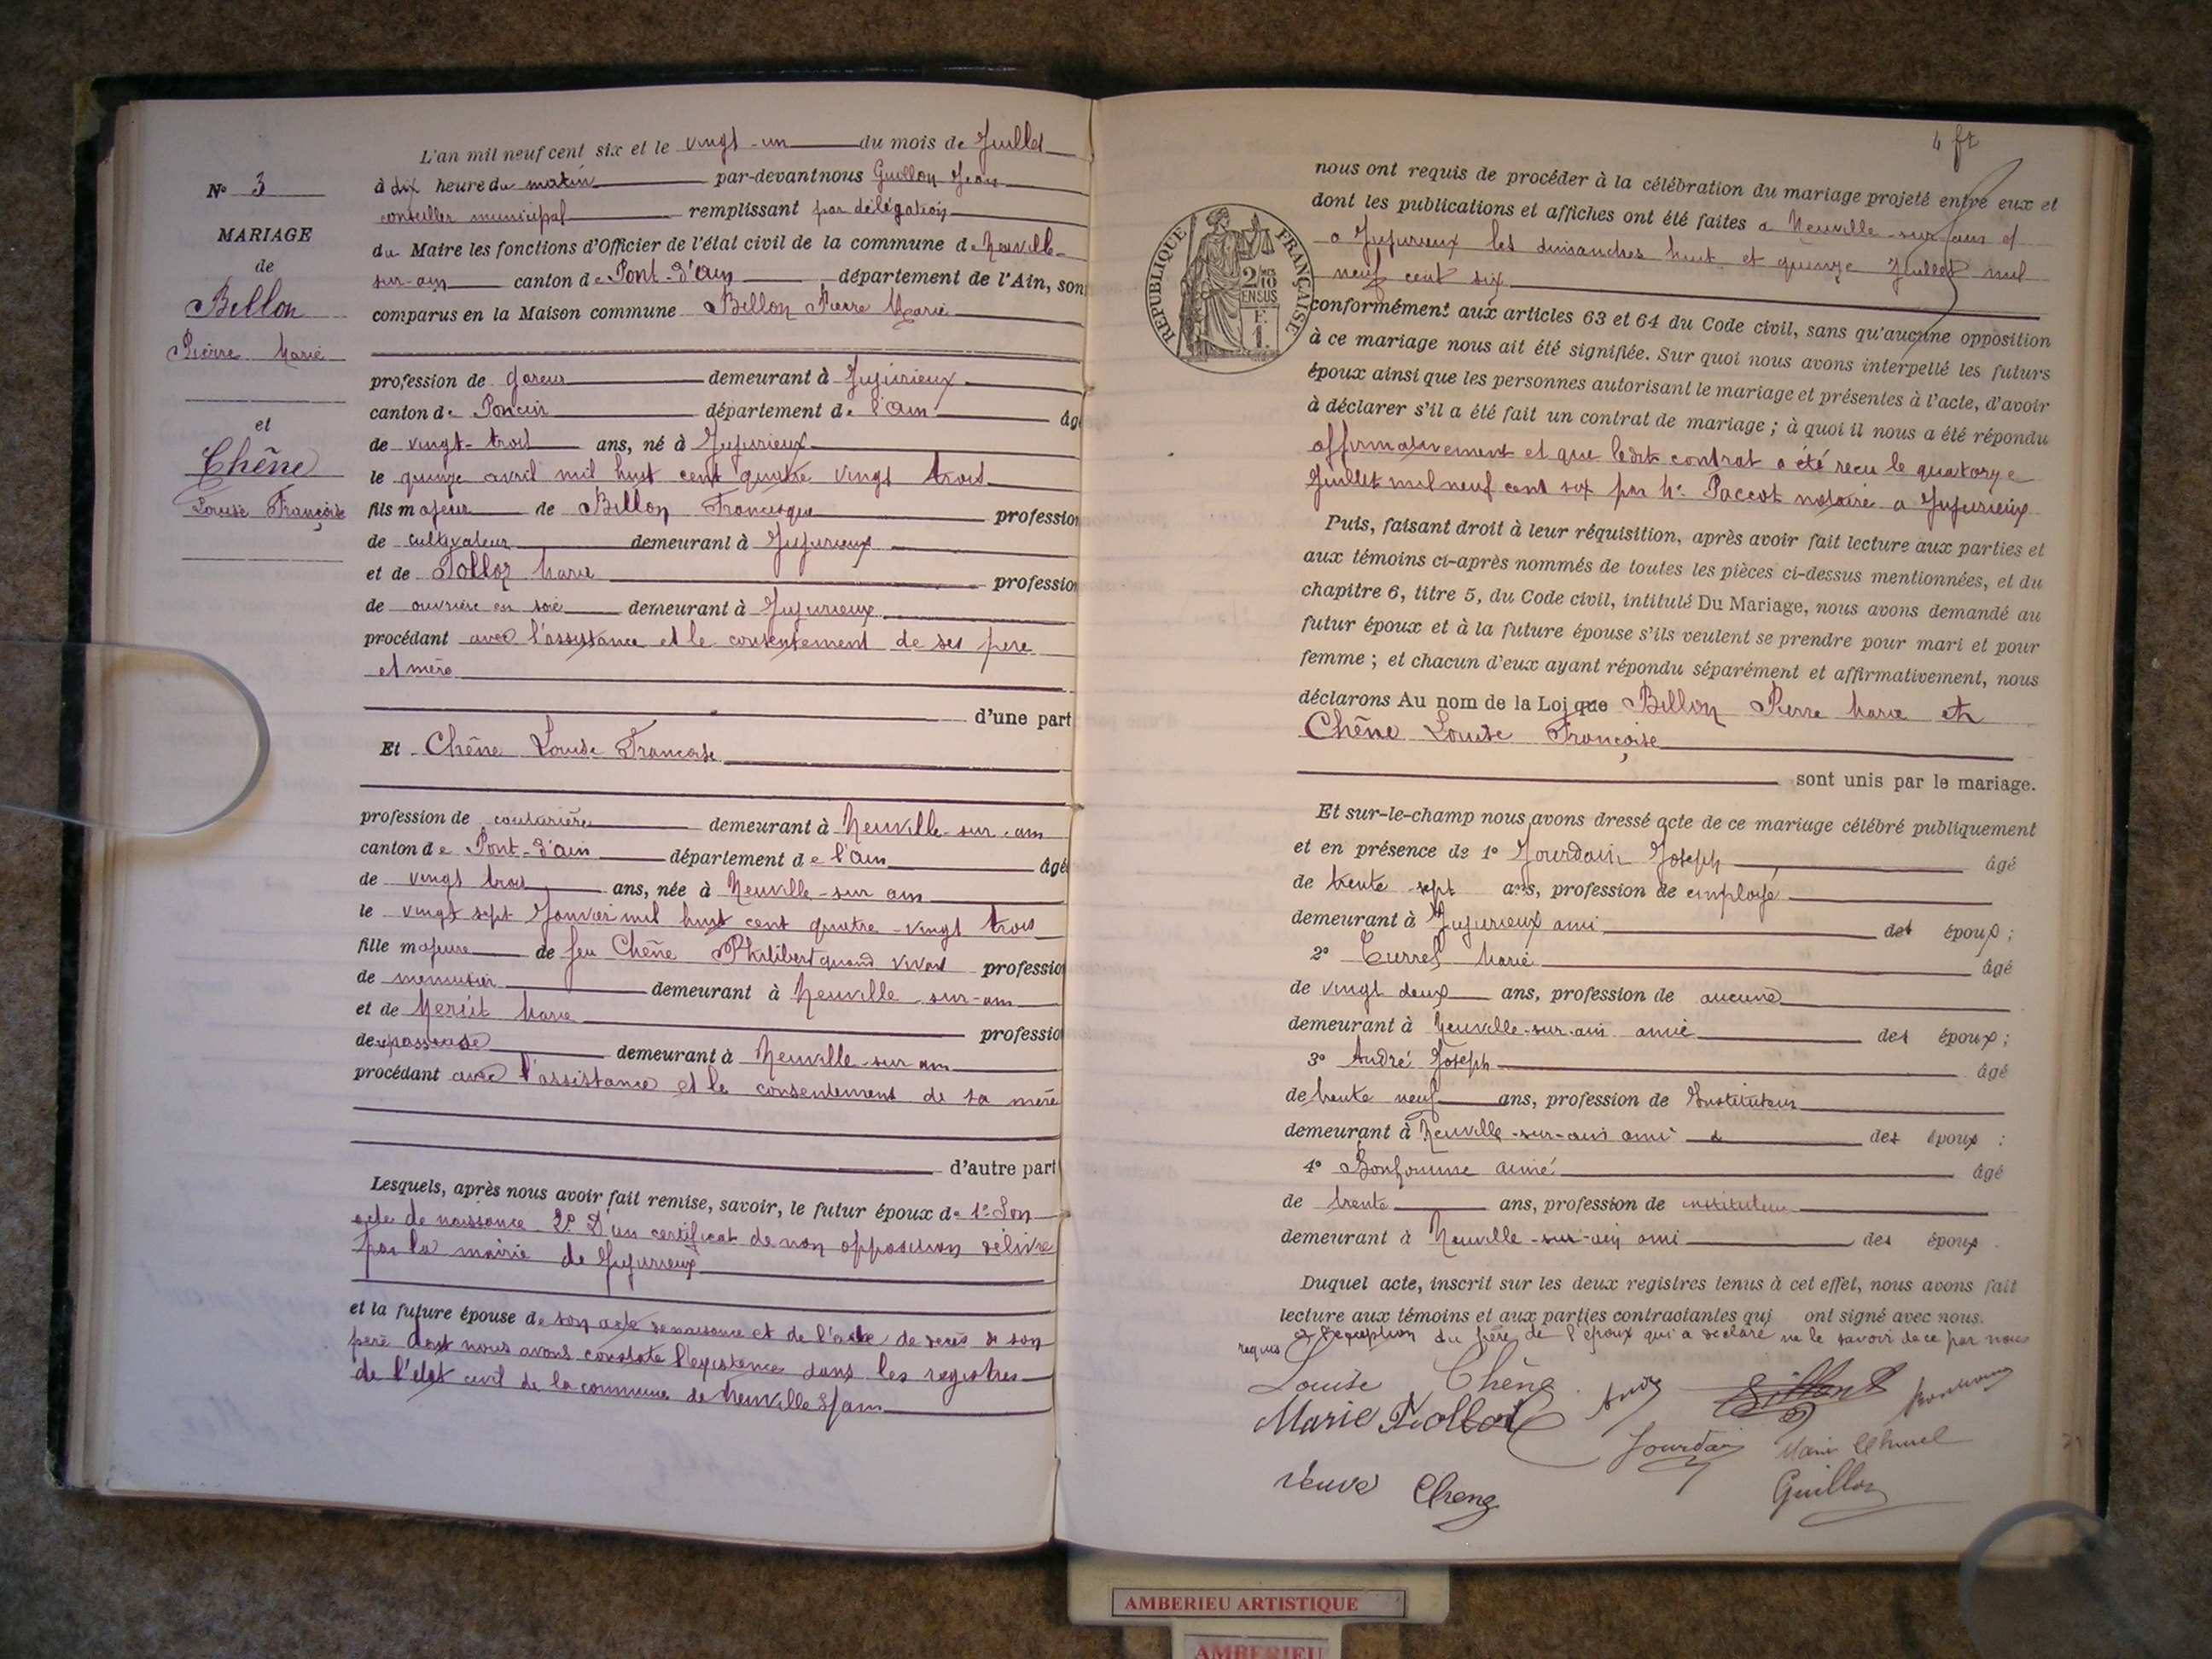 L'an mil neuf cent six et le vingt-un du mois de Juillet
N° 3
à dix heure du matin par-devant nous Guillon Jean
conseiller municipal remplissant par délégation
MARIAGE
du Maire les fonctions d'Officier de l'état civil de la commune de Neuville-
de
sur-ain canton de Pont-d'ain département de l'Ain, son
Billon
comparus en la Maison commune Billon Pierre Marie
Pierre Marie
profession de demeurant à Jujurieux
canton de Poncin département de l'ain âgé
et
de vingt-trois ans, né à Jujurieux
Chêne
le quinze avril mil huit cent quatre vingt trois
Louise Françoise
fils majeur de Billon Francisque profession
de cultivateur demeurant à Jujurieux
et de Marie profession
de ouvrière en soie demeurant à Jujurieux
procédant avec l'assistance et le consentement de ses père
et mère
d'une part
Et Chêne Louise Francoise
profession de couturière demeurant à Neuville-sur-ain
canton de Pont-d'ain département de l'ain âgé
de vingt trois ans, née à Neuville-sur ain
le vingt sept Janvier mil huit cent quatre-vingt trois
fille majeure de feu Chêne Philibert quand vivait profession
de menuisier demeurant à Neuville-sur-ain
et de Marie profession
de demeurant à Neuville-sur ain
procédant avec l'assistance et le consentement de sa mère
d'autre part
Lesquels, après nous avoir fait remise, savoir, le futur époux de 1° Son
acte de naissance 2° D'un certificat de non opposition délivré
par la mairie de Jujurieux
et la future épouse de son acte de naissance et de l'acte de décès de son
père dont nous avons constaté l'existence dans les registres
de l'état civil de la commune de Neuville s/ain
REPUBLIQUE FRANÇAISE
2/10 EN SUS
F.
1.
nous ont requis de procéder à la célébration du mariage projeté entre eux et
dont les publications et affiches ont été faites a Neuville-sur-ain et
a Jujurieux les dimanches huit et quinze Juillet mil
neuf cent six
conformément aux articles 63 et 64 du Code civil, sans qu'aucune opposition
à ce mariage nous ait été signifiée. Sur quoi nous avons interpellé les futurs
époux ainsi que les personnes autorisant le mariage et présentes à l'acte, d'avoir
à déclarer s'il a été fait un contrat de mariage ; à quoi il nous a été répondu
affirmativement et que ledit contrat a été reçu le quatorze
Juillet mil neuf cent six par Me Paccot notaire a Jujurieux
Puis, faisant droit à leur réquisition, après avoir fait lecture aux parties et
aux témoins ci-après nommés de toutes les pièces ci-dessus mentionnées, et du
chapitre 6, titre 5, du Code civil, intitulé Du Mariage, nous avons demandé au
futur époux et à la future épouse s'ils veulent se prendre pour mari et pour
femme ; et chacun d'eux ayant répondu séparément et affirmativement, nous
déclarons Au nom de la Loi que Billon Pierre Marie et
Chêne Louise Françoise
sont unis par le mariage.
Et sur-le-champ nous avons dressé acte de ce mariage célébré publiquement
et en présence de 1° Jourdain Joseph âgé
de trente sept ans, profession de employé
demeurant à Jujurieux ami des époux ;
2° Marie âgé
de vingt deux ans, profession de aucune
demeurant à Neuville-sur-ain amie des époux ;
3° André Joseph âgé
de trente neuf ans, profession de Instituteur
demeurant à Neuville-sur-ain ami des époux ;
4° Bonhomme aimé âgé
de trente ans, profession de instituteur
demeurant à Neuville-sur-ain ami des époux
Duquel acte, inscrit sur les deux registres tenus à cet effet, nous avons fait
lecture aux témoins et aux parties contractantes qui ont signé avec nous.
à l'exception du père de l'époux qui a déclaré ne le savoir de ce par nous
requis
Louise Chêne
Marie
Jourdain
Veuve Chêne
Guillon
AMBERIEU ARTISTIQUE
AMBERIEU